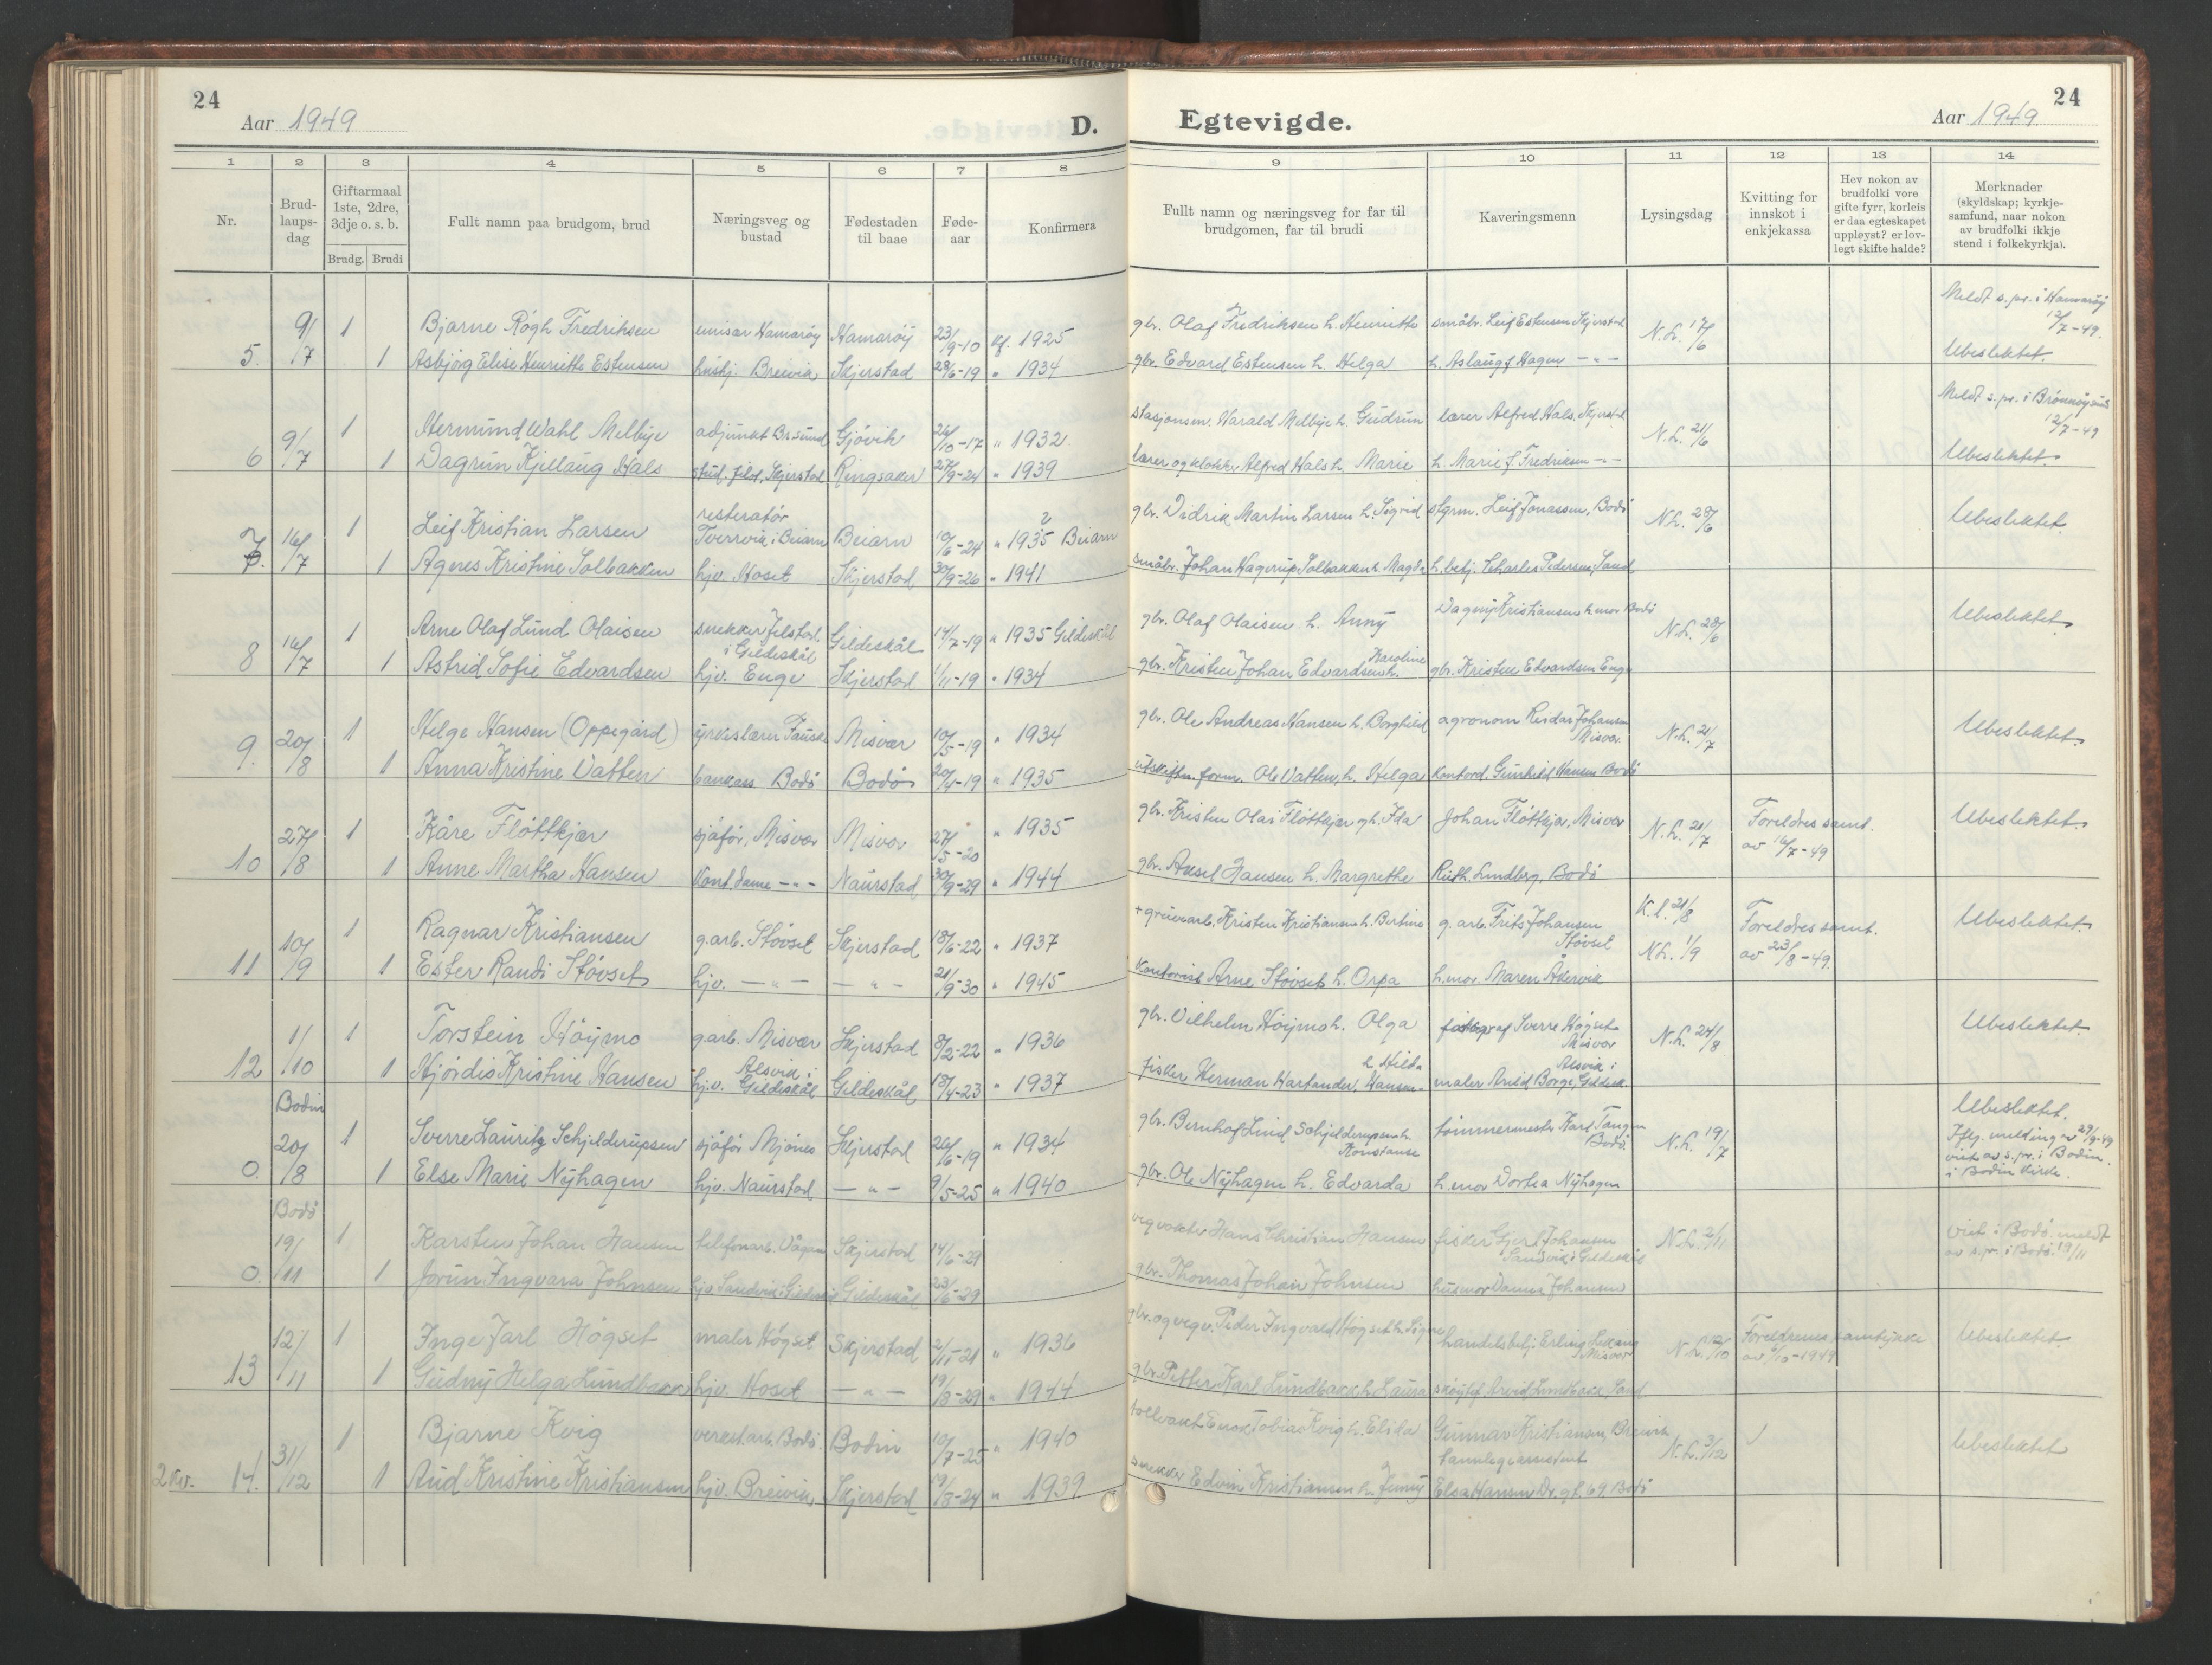 24
Aar 1949
D.
1 2 3 4 5 6 7 8
Nr.
Brud-
laups-
dag
Giftarmaal
1ste, 2dre,
3dje o. s. b.
Brudg. Brudi
Fullt namn paa brudgom, brud
Næringsveg og
bustad
Fødestaden
til baae
Føde-
aar
Konfirmera
5. 9/7 1 Bjarne Rögh Fredriksen emisær Hamaröy Hamaröy 23/9-10 kf. 1925
1 Asbjörg Elise Henriette Estensen hushj. Breivik Skjerstad 28/6-19 " 1934
6 9/7 1 Hermund Wahl Melbye adjunkt Br.sund Gjövik 26/10-17 " 1932
1 Dagrun Kjellaug Hals stud. filol. Skjerstad Ringsaker 27/9-24 " 1939
7. 16/7 1 Leif Kristian Larsen resteratör
Tverrvik i Beiarn Beiarn 10/6-24 " 1935 Beiarn
1 Agnes Kristine Solbakken hjv. Hoset Skjerstad 30/9-26 " 1941
8 16/7 1 Arne Olaf Lund Olaisen snekker Jelstad
i Gildeskål Gildeskål 14/7-19 " 1935 Gildeskål
1 Astrid Sofie Edvardsen hjv. Enge Skjerstad 1/11-19 " 1934
9. 20/8 1 Helge Hansen (Oppegård) yrkeslærer Fauske Misvær 10/5-19 " 1934
1 Anna Kristine Vatten bankass. Bodö Bodö 20/4-19 " 1935
10 27/8 1 Kåre Flöttkjær sjåför, Misvær Misvær 27/5-20 " 1935
1 Anne Martha Hansen Kont.dame -"- Naurstad 30/9-29 " 1944
11 10/9 1 Ragnar Kristiansen g.arb. Stövset Skjerstad 18/6-22 " 1937
1 Ester Randi Stövset hjv. -"- -"- 21/9-30 " 1945
12 1/10 1 Torstein Höymo g.arb. Misvær Skjerstad 8/2-22 " 1936
1 Hjördis Kristine Hansen hjv. Alsvik i
Gildeskål Gildeskål 13/4-23 " 1937
Bodin
0. 20/8 1 Sverre Lauritz Schjelderupsen sjåför Mjönes Skjerstad 26/6-19 " 1934
1 Else Marie Nyhagen hjv. Naurstad -"- 9/5-25 " 1940
Bodö
0. 19/11 1 Karsten Johan Hansen telefonarb. Vågan Skjerstad 14/6-29
1 Jorun Ingvara Johnsen hjv. Sandvik i Gildeskål Gildeskål 23/6-29
13 12/11 1 Inge Jarl Högset maler Högset Skjerstad 2/11-21 " 1936
1 Gudny Helga Lundbakk hjv. Hoset -"- 19/8-29 " 1944
2 kv. 14. 31/12 1 Bjarne Kvig verkst.arb. Bodö Bodin 10/7-25 " 1940
1 Aud Kristine Kristiansen hjv. Breivik Skjerstad 19/8-24 " 1939
24
Egtevigde.
Aar 1949
9 10 11 12 13 14
Fullt namn og næringsveg for far til
brudgomen, far til brudi
Kaveringsmenn
Lysingsdag
Kvitting for
innskot i
enkjekassa
Hev nokon av
brudfolki vore
gifte fyrr, korleis
er daa egteskapet
uppløyst? er lov-
legt skifte halde?
Merknader
(skyldskap; kyrkje-
samfund, naar nokon
av brudfolki ikkje
stend i folkekyrkja).
gbr. Olaf Fredriksen h. Henriette småbr. Leif Estensen Skjerstad N.L. 17/6 Meldt s.pr. i Hamaröy
12/7-49.
gbr. Edvard Estensen h. Helga h. Aslaug Hagen -"- Ubeslektet.
stasjonsm. Harald Melbye h. Gudrun lærer Alfred Hals, Skjerstad N.L. 21/6 Meldt s.pr. i Brönnöysund
12/7-49
lærer og klokker Alfred Hals h. Marie h. Marie J. Fredriksen -"- Ubeslektet.
gbr. Didrik Martin Larsen h. Sigrid Leif Jonassen, Bodö N.L. 28/6 Ubeslektet.
småbr. Johan Hagerup Solbakken h. Magda h.betj. Charles Pedersen, Sand
gbr. Olaf Olaisen h. Anny Dagny Kristiansen h.mor Bodö N.L. 28/6 Ubeslektet.
gbr. Kristen Johan Edvardsen h. Karoline gbr. Kristen Edvardsen Enge
gbr. Ole Andreas Hansen h. Borghild agronom Reidar Johansen
Misvær N.L. 21/7 Ubeslektet.
utskiftn. form. Ole Vatten, h. Helga Kontord. Gunhild Hansen Bodö
gbr. Kristen Olai Flöttkjær og h. Ida Johan Flöttkjær, Misvær N.L. 21/7 Foreldres samt.
av 16/7-49 Ubeslektet.
gbr. Aksel Hansen h. Margrethe Ruth Lundberg, Bodö
+ gruvearb. Kristen Kristiansen h. Bertine g.arb. Frits Johansen
Stövset K.l. 21/8
N.L. 1/9 Foreldres samt.
av 23/8-49. Ubeslektet.
Kontorist Arne Stövset h. Orpa h.mor. Maren Åkervik
gbr. Vilhelm Höymo h. Olga fotograf Sverre Högset
Misvær N.L. 24/8 Ubeslektet.
fisker Herman Hartander Hansen h. Hilda maler Arild Borge, Alsvik i
Gildesk.
gbr. Bernhof Lind Schjelderupsen h.
Konstanse tömmermester Karl Tangen
Bodö. N.L. 19/7 Ubeslektet.
Iflg. melding av 29/9-49
viet av s.pr. i Bodin
i Bodin Kirke.
gbr. Ole Nyhagen h. Edvarda h.mor Dortea Nyhagen
vegvokter Hans Christian Hansen fisker Gjert Johansen
Sandvik i Gildeskål N.L. 2/11 viet i Bodö. meldt
av s.pr. i Bodö. 19/11
gbr. Thomas Johan Johnsen husmor Johansen
gbr. og vegv. Peder Ingvald Högset h. Signe handelsbetj. Erling
Misvær N.L. 12/10 Foreldrenes samtykke
av 6/10-1949 Ubeslektet.
gbr. Petter Karl Lundbakk h. Laura Arvid Lundbakk, Sand
tollvakt Enok Tobias Kvig h. Elida Gunnar Kristiansen, Breivik N.L. 3/12 Ubeslektet
snekker Edvin Kristiansen h. Jenny tannlegeassistent
Elsa Hansen Dr. gt. 69. Bodö